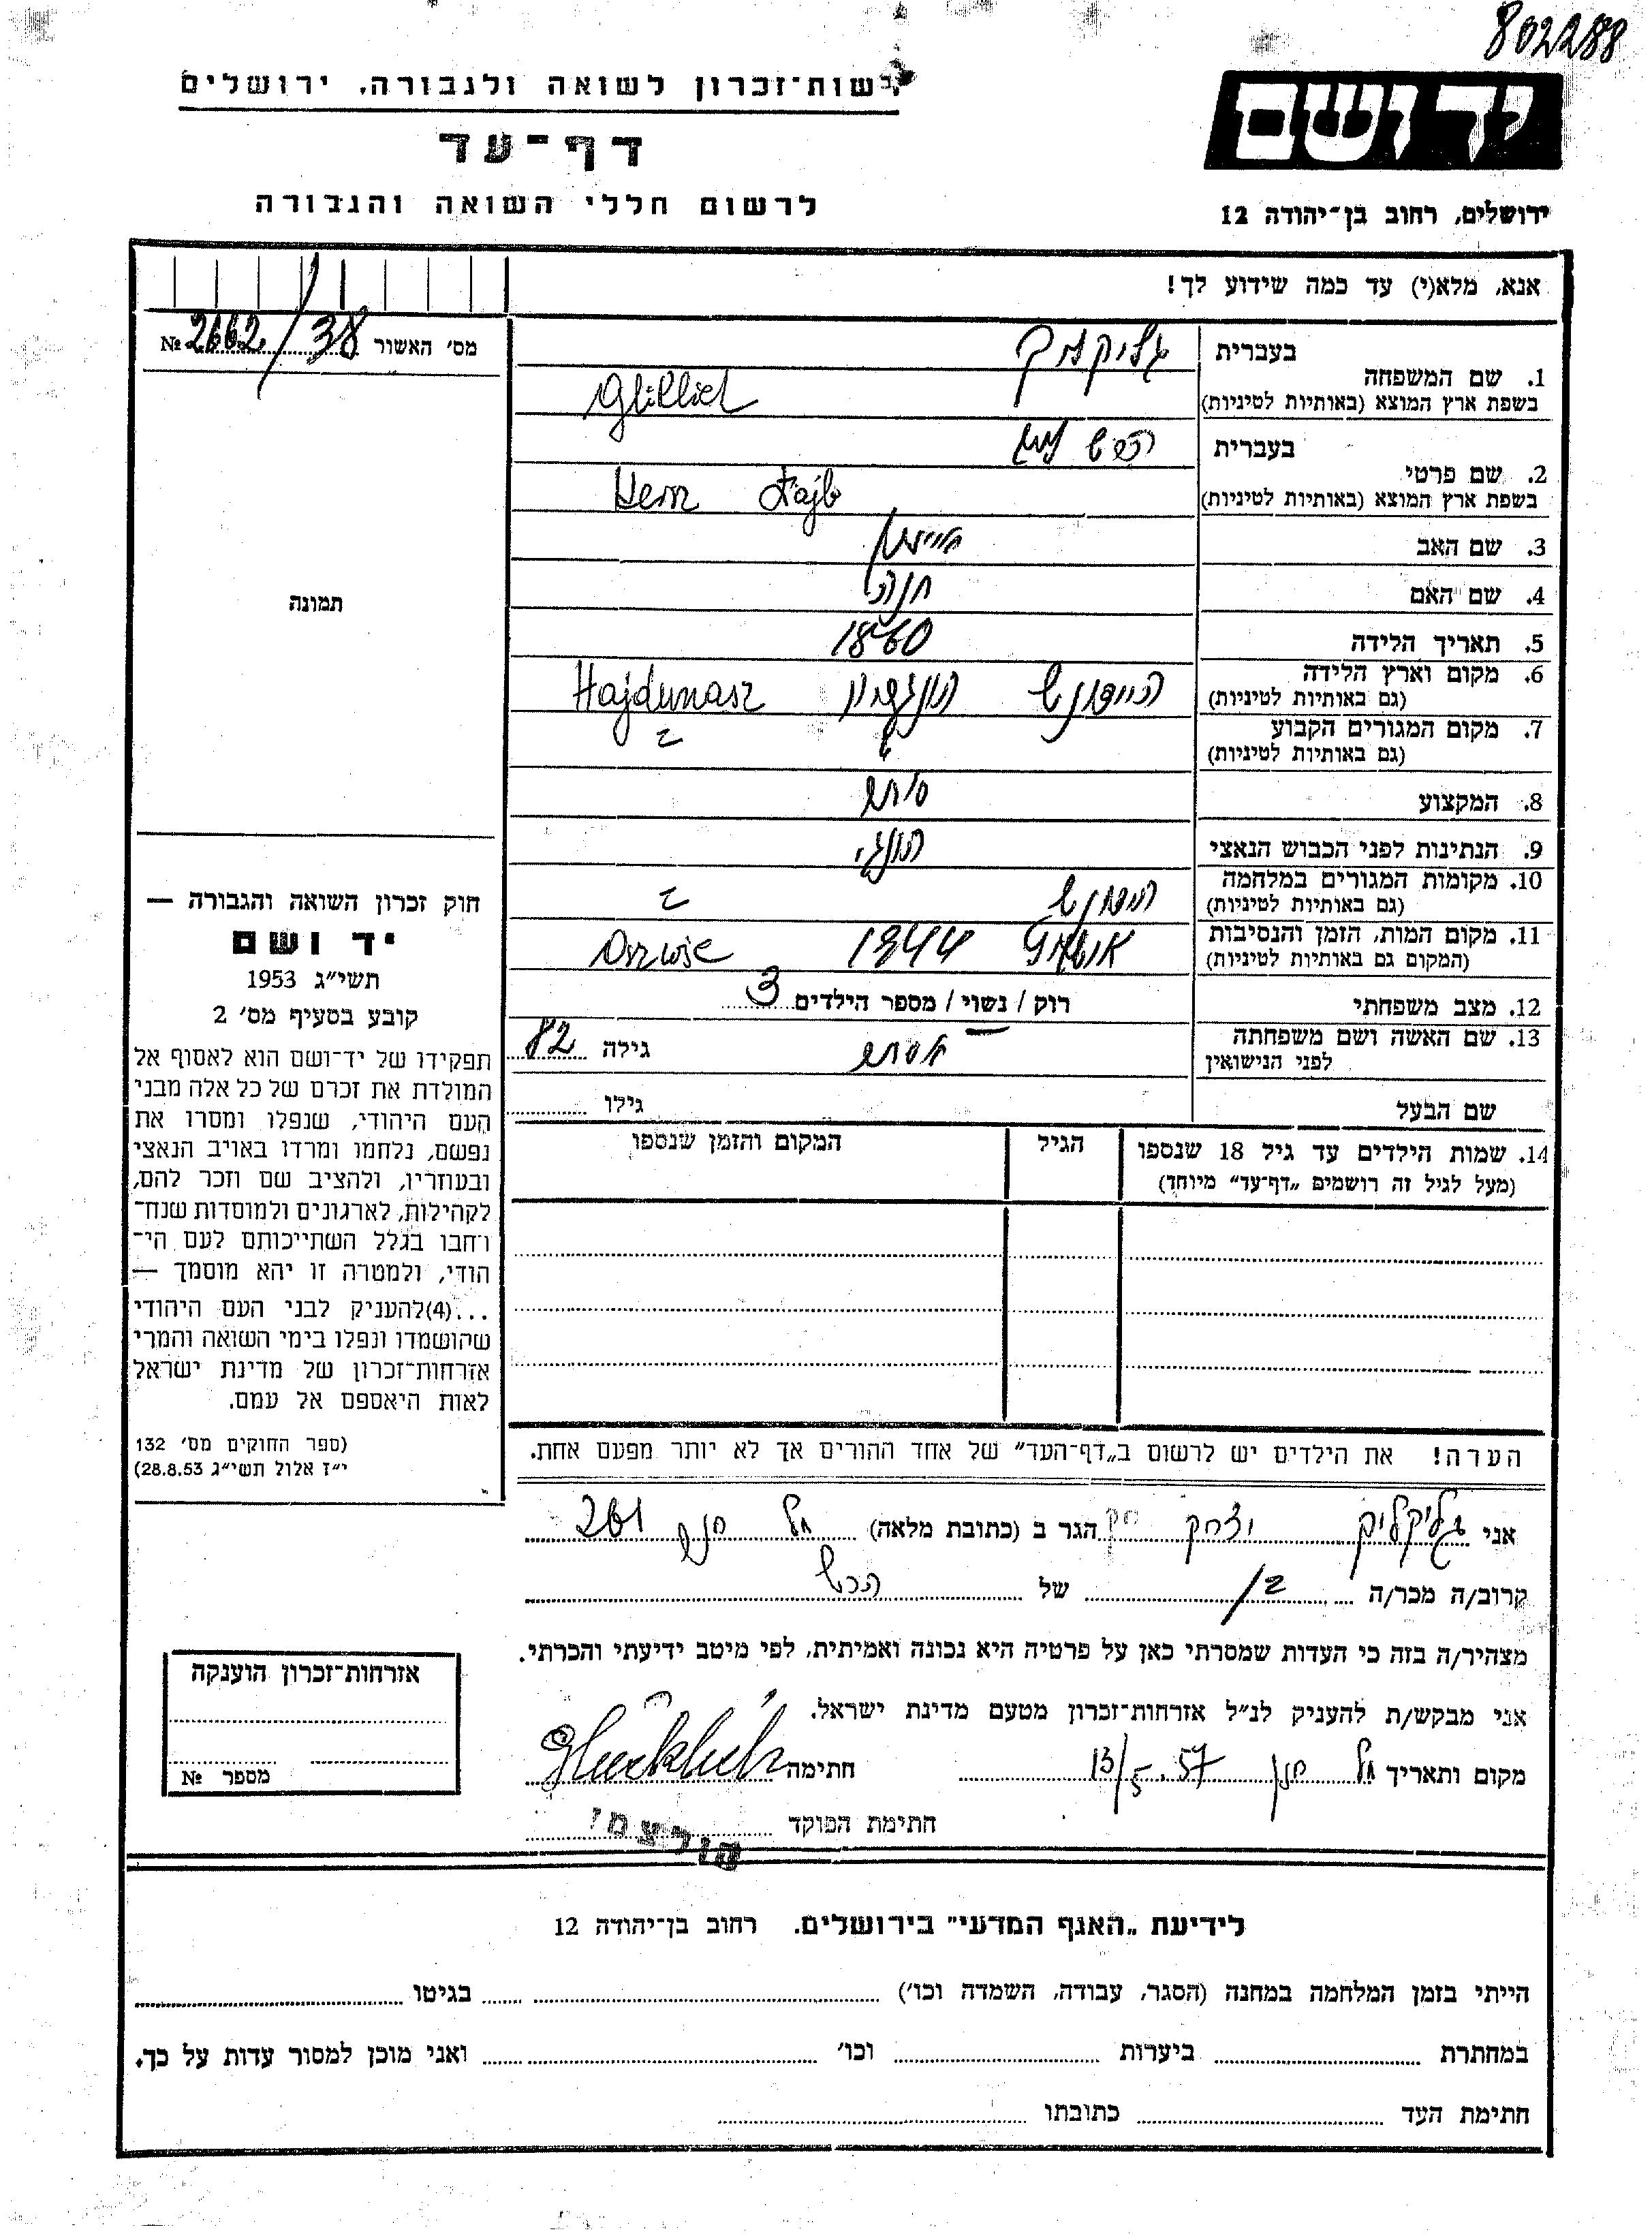 802288
רשות־זכרון לשואה ולגבורה, ירושלים
יד ושם
דף־עד
לרשום חללי השואה והגבורה
ירושלים, רחוב בן־יהודה 12
אנא, מלא(י) עד כמה שידוע לך!
מס׳ האשור № 2662/38
תמונה
1. שם המשפחה
בעברית גליקליך
בשפת ארץ המוצא (באותיות לטיניות)
2. שם פרטי
בעברית
בשפת ארץ המוצא (באותיות לטיניות)
3. שם האב
4. שם האם חנה
5. תאריך הלידה 1860
6. מקום וארץ הלידה
(גם באותיות לטיניות) Hajdunasz
7. מקום המגורים הקבוע
(גם באותיות לטיניות)
8. המקצוע סוחר
9. הנתינות לפני הכבוש הנאצי הונגרי
10. מקומות המגורים במלחמה
(גם באותיות לטיניות)
11. מקום המות, הזמן והנסיבות 1944
(המקום גם באותיות לטיניות)
12. מצב משפחתי רווק / נשוי / מספר הילדים 3
13. שם האשה ושם משפחתה אסתר גילה 82
לפני הנישואין
שם הבעל גילו
14. שמות הילדים עד גיל 18 שנספו הגיל המקום והזמן שנספו
(מעל לגיל זה רושמים „דף־עד״ מיוחד)
הערה! את הילדים יש לרשום ב„דף־העד״ של אחד ההורים אך לא יותר מפעם אחת.
חוק זכרון השואה והגבורה —
יד ושם
תשי״ג 1953
קובע בסעיף מס׳ 2
תפקידו של יד־ושם הוא לאסוף אל
המולדת את זכרם של כל אלה מבני
העם היהודי, שנפלו ומסרו את
נפשם, נלחמו ומרדו באויב הנאצי
ובעוזריו, ולהציב שם וזכר להם,
לקהילות, לארגונים ולמוסדות שנח־
רבו בגלל השתייכותם לעם הי־
הודי, ולמטרה זו יהא מוסמך —
...(4)להעניק לבני העם היהודי
שהושמדו ונפלו בימי השואה והמרי
אזרחות־זכרון של מדינת ישראל
לאות היאספם אל עמם.
(ספר החוקים מס׳ 132
י״ז אלול תשי״ג 28.8.53)
אני גליקליך יצחק הגר ב (כתובת מלאה) תל חנן 261
קרוב/ה מכר/ה של
מצהיר/ה בזה כי העדות שמסרתי כאן על פרטיה היא נכונה ואמיתית, לפי מיטב ידיעתי והכרתי.
אני מבקש/ת להעניק לנ״ל אזרחות־זכרון מטעם מדינת ישראל.
מקום ותאריך תל חנן 13/5.57 חתימה Glücklich
חתימת הפוקד
אזרחות־זכרון הוענקה
מספר №
לידיעת „האגף המדעי״ בירושלים, רחוב בן־יהודה 12
הייתי בזמן המלחמה במחנה (הסגר, עבודה, השמדה וכו׳) בגיטו
במחתרת ביערות וכו׳ ואני מוכן למסור עדות על כך.
חתימת העד כתובתו